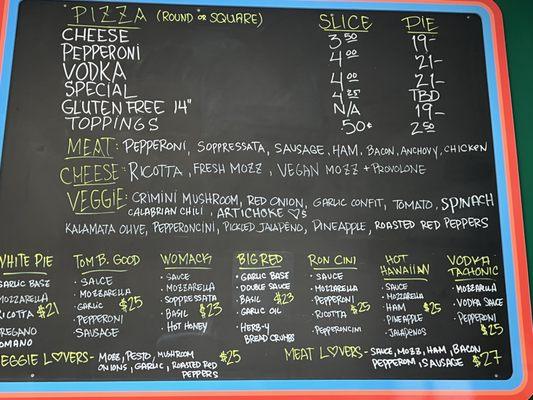 PIZZA (ROUND OR SQUARE) SLICE PIE
CHEESE 3 50 19-
PEPPERONI 4 00 21-
VODKA 4 00 21-
SPECIAL 4 25 TBD
GLUTEN FREE 14" N/A 19-
TOPPINGS 50¢ 2 50
MEAT: PEPPERONI, SOPPRESSATA, SAUSAGE, HAM, BACON, ANCHOVY, CHICKEN
CHEESE: RICOTTA, FRESH MOZZ, VEGAN MOZZ + PROVOLONE
VEGGIE: CRIMINI MUSHROOM, RED ONION, GARLIC CONFIT, TOMATO, SPINACH
CALABRIAN CHILI, ARTICHOKE ♡S
KALAMATA OLIVE, PEPPERONCINI, PICKLED JALAPEÑO, PINEAPPLE, ROASTED RED PEPPERS
WHITE PIE
GARLIC BASE
MOZZARELLA
RICOTTA $21
OREGANO
ROMANO
TOM B. GOOD
· SAUCE
· MOZZARELLA
· GARLIC $25
· PEPPERONI
· SAUSAGE
WOMACK
· SAUCE
· MOZZARELLA
· SOPPRESSATA
· BASIL $23
· HOT HONEY
BIG RED
· GARLIC BASE
· DOUBLE SAUCE
· BASIL $23
· GARLIC OIL
· HERB-Y
BREAD CRUMBS
RON CINI
· SAUCE
· MOZZARELLA
· PEPPERONI
· RICOTTA $25
· PEPPERONCINI
HOT
HAWAIIAN
· SAUCE
· MOZZARELLA
· HAM $25
· PINEAPPLE
· JALAPENOS
VODKA
TACHONIC
· MOZZARELLA
· VODKA SAUCE
· PEPPERONI
$25
VEGGIE LOVERS - MOZZ, PESTO, MUSHROOM $25
ONIONS, GARLIC, ROASTED RED
PEPPERS
MEAT L♡VERS - SAUCE, MOZZ, HAM, BACON
PEPPERONI, SAUSAGE $27